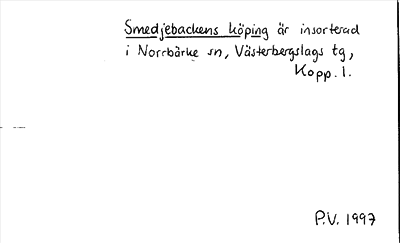 Smedjebackens köping är insorterad
i Norrbärke sn, Västerbergslags tg,
Kopp. l.
P.V. 1997